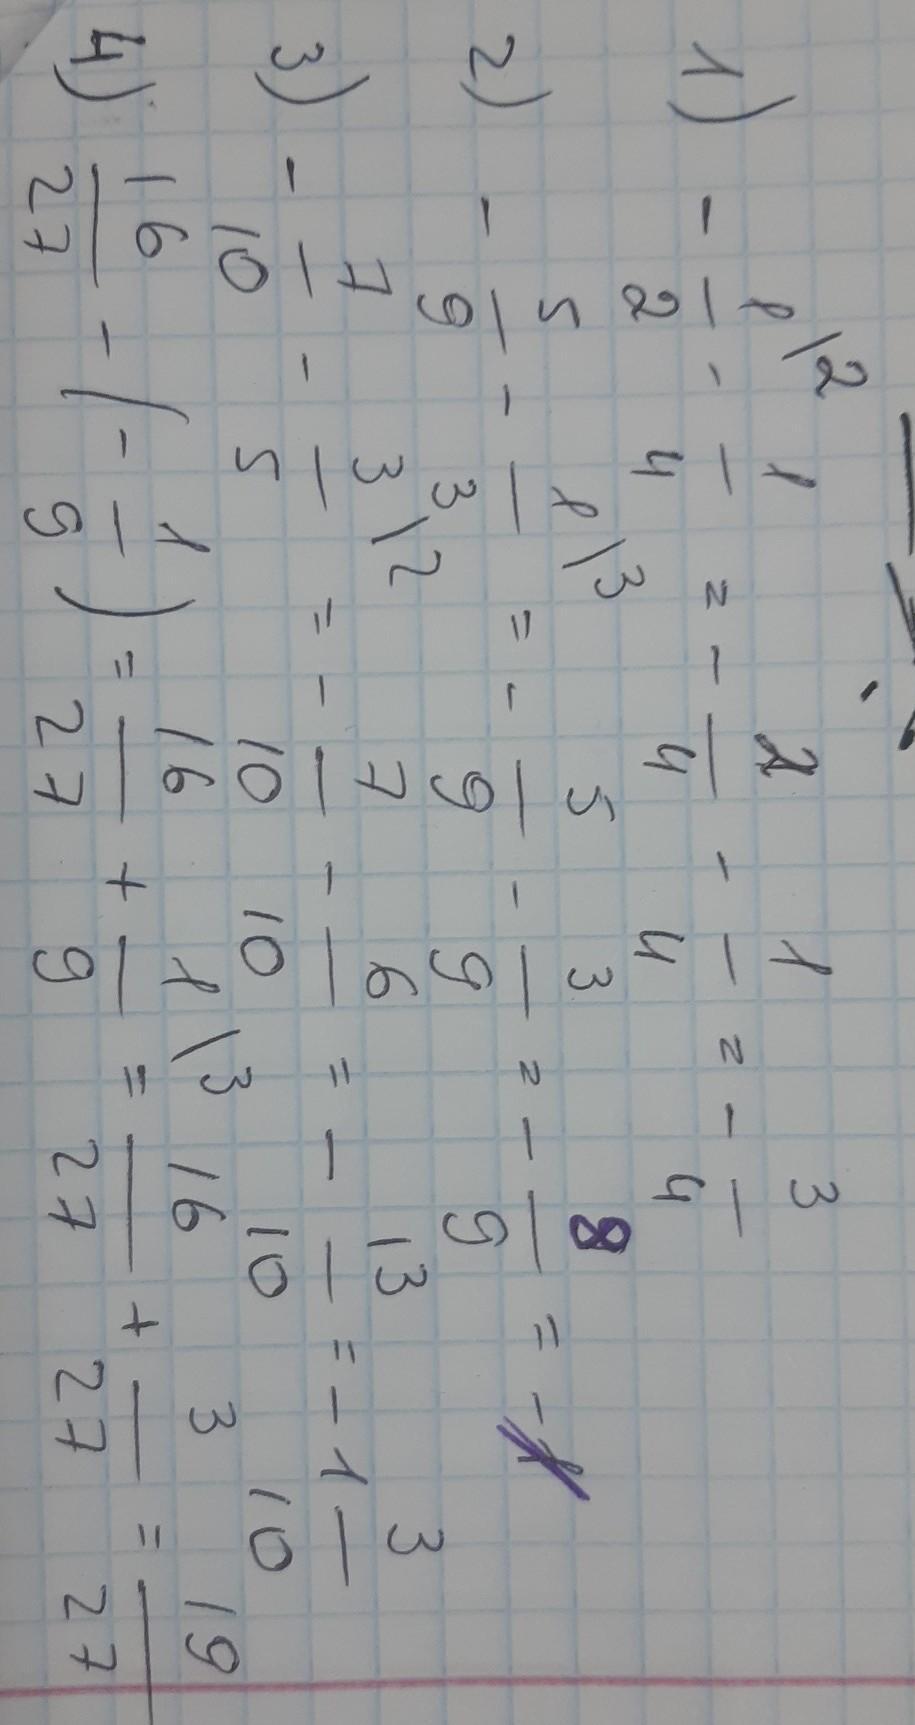 1) - 1/2 \2 - 1/4 = - 2/4 - 1/4 = - 3/4
2) - 5/9 - 1/3 \3 = - 5/9 - 3/9 = - 8/9 = -
3) - 7/10 - 3/5 \2 = - 7/10 - 6/10 = - 13/10 = - 1 3/10
4) 16/27 - (- 1/9) = 16/27 + 1/9 \3 = 16/27 + 3/27 = 19/27